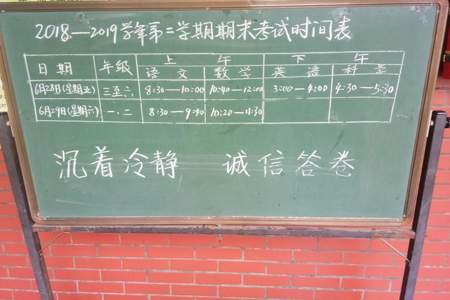 2018—2019学年第二学期期末考试时间表
日期 年级 上午 下午
语文 数学 英语 科学
6月28日(星期五) 三至六 8:30—10:00 10:40—12:00 3:00—4:00 4:30—5:30
6月29日(星期六) 一、二 8:30—9:40 10:20—11:30
沉着冷静 诚信答卷